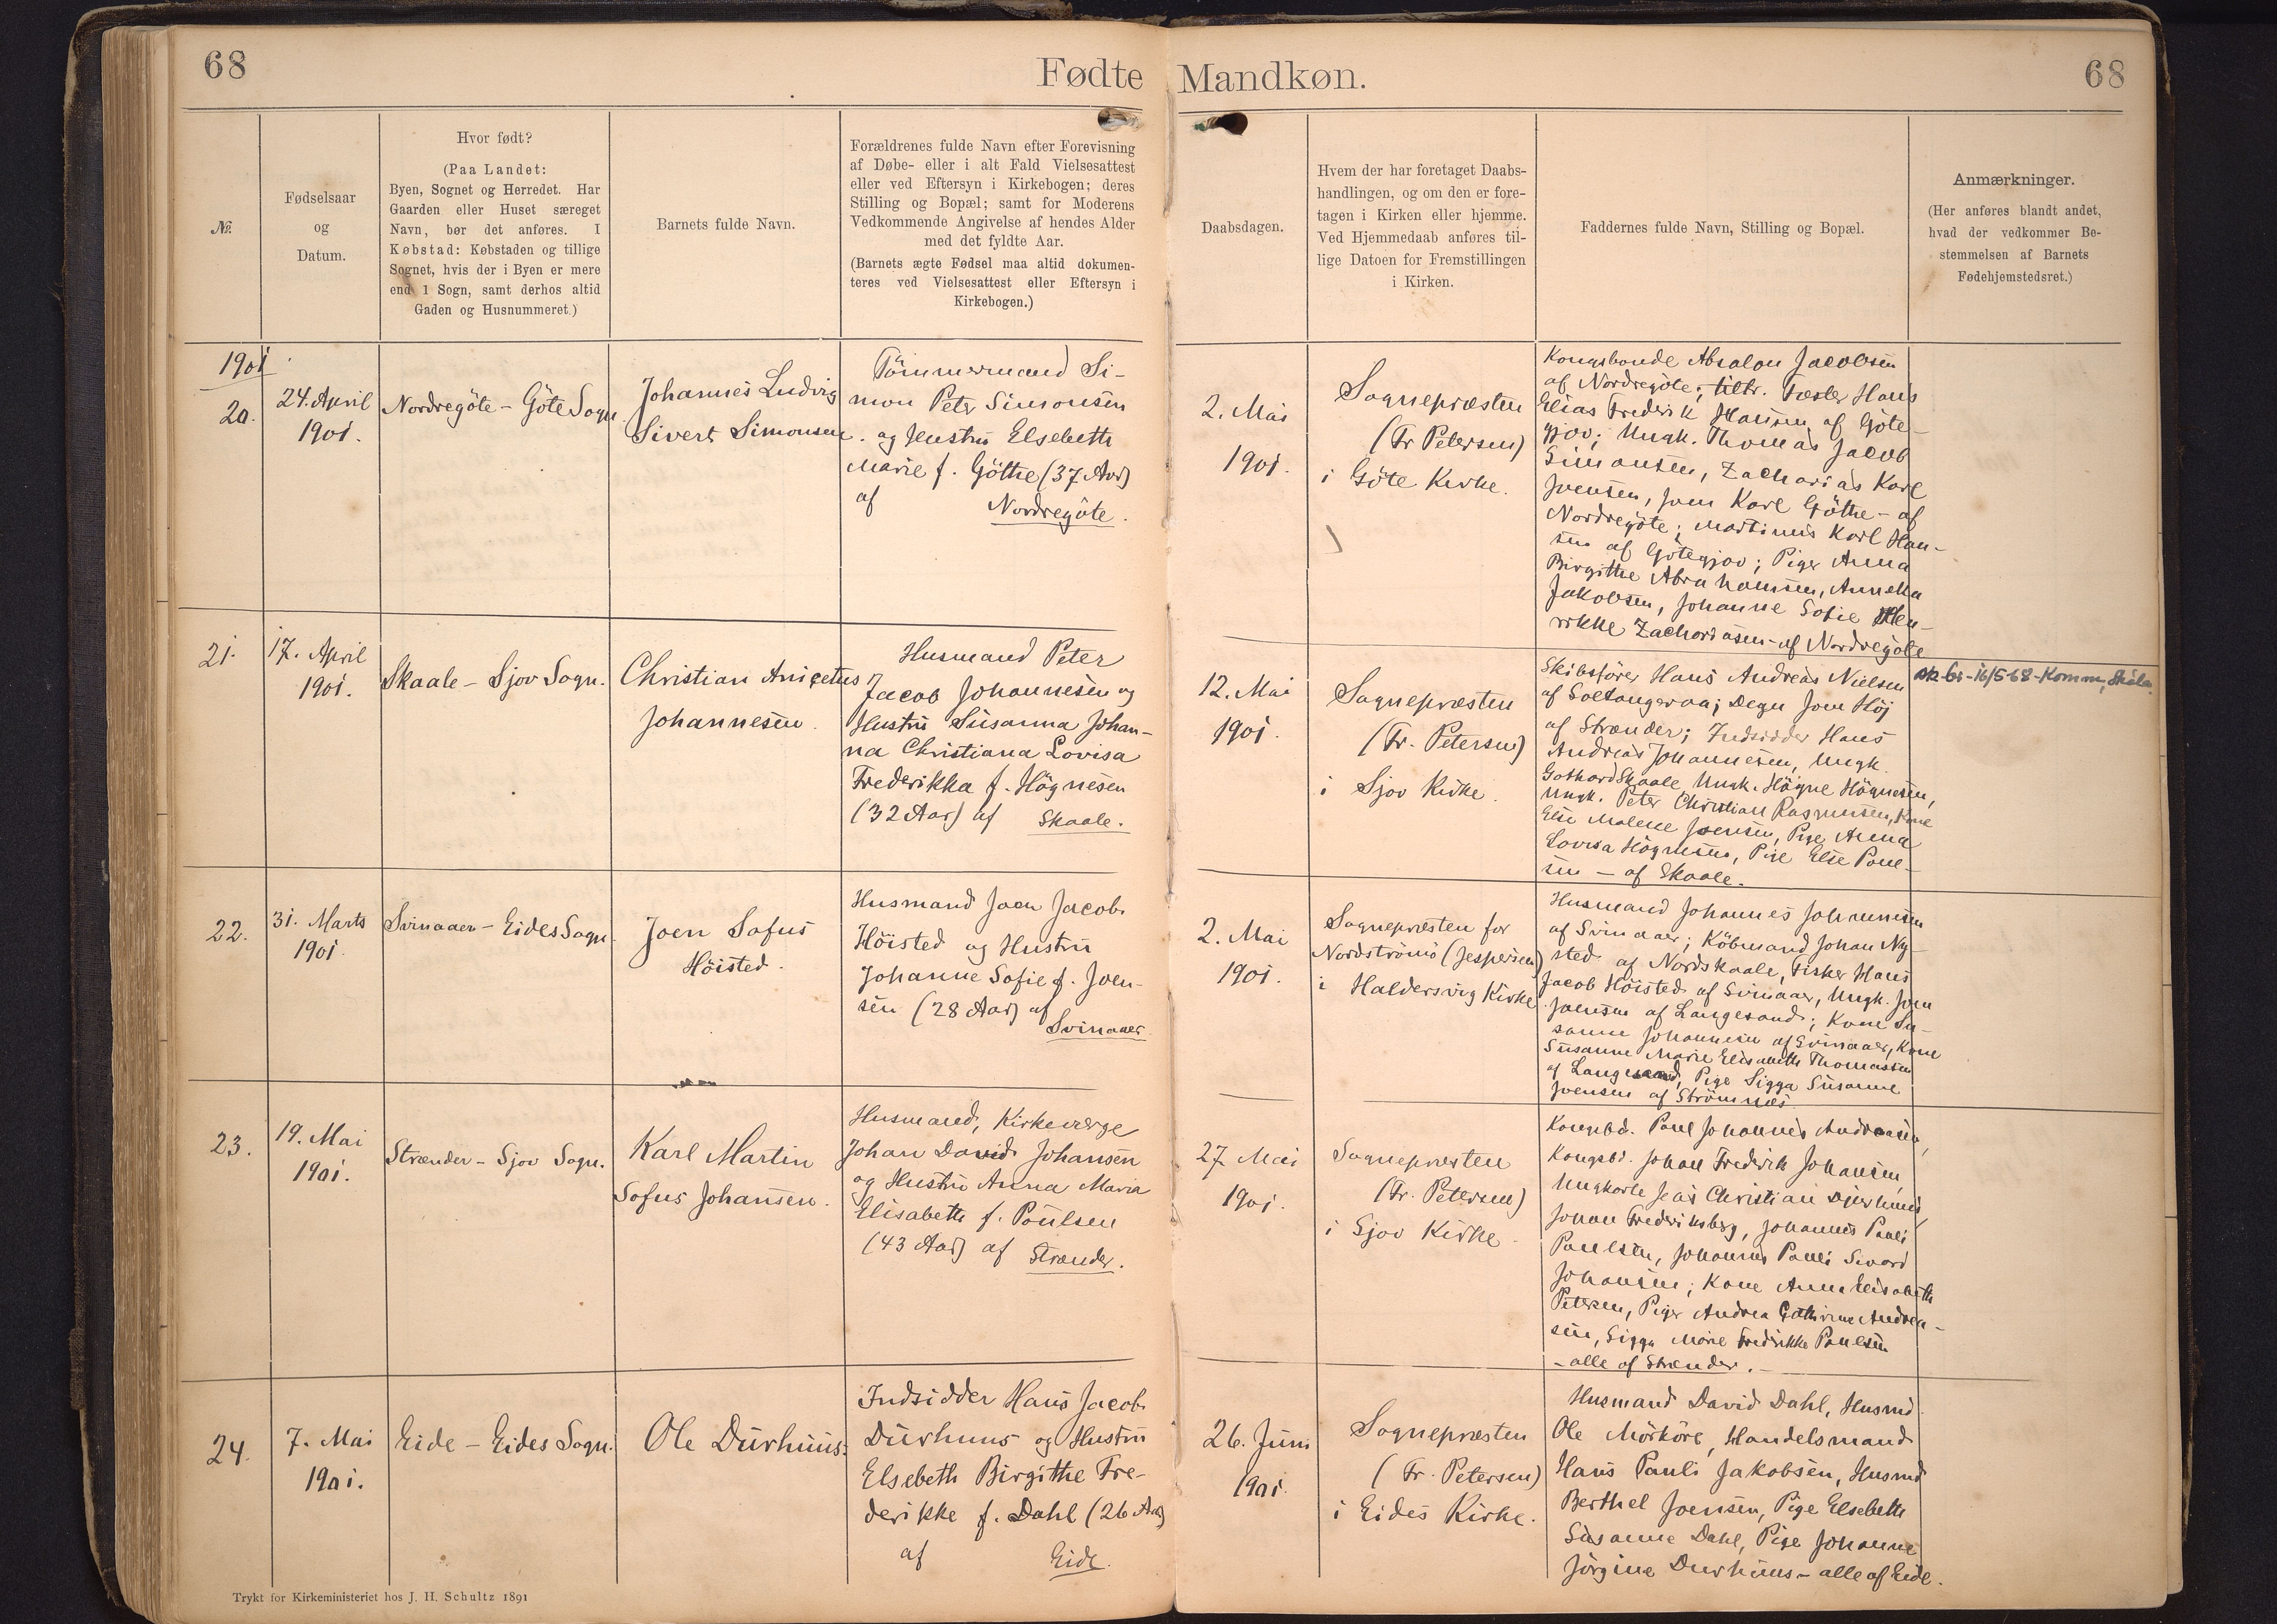 68
Fødte
Mandkøn.
68
Nr.
Fødselsaar
og
Datum.
Hvor født?
(Paa Landet:
Byen, Sognet og Herredet. Har
Gaarden eller Huset særeget
Navn, bør det anføres. I
Købstad: Købstaden og tillige
Sognet, hvis der i Byen er mere
end 1 Sogn, samt derhos altid
Gaden og Husnummeret.)
Barnets fulde Navn.
Forældrenes fulde Navn efter Forevisning
af Døbe- eller i alt Fald Vielsesattest
eller ved Eftersyn i Kirkebogen; deres
Stilling og Bopæl; samt for Moderens
Vedkommende Angivelse af hendes Alder
med det fyldte Aar.
(Barnets ægte Fødsel maa altid dokumen-
teres ved Vielsesattest eller Eftersyn i
Kirkebogen.)
Daabsdagen.
Hvem der har foretaget Daabs-
handlingen, og om den er fore-
tagen i Kirken eller hjemme.
Ved Hjemmedaab anføres til-
lige Datoen for Fremstillingen
i Kirken.
Faddernes fulde Navn, Stilling og Bopæl.
Anmærkninger.
(Her anføres blandt andet,
hvad der vedkommer Be-
stemmelsen af Barnets
Fødehjemstedsret.)
1901
20.
24. April
1901.
Nordregöte - Göte Sogn
Johannes Ludvig
Sivert Simonsen.
Tömmermand Si-
mon Peter Simonsen
og Hustru Elsebeth
Marie f. Göthe (37 Aar)
af Nordregöte.
2. Mai
1901.
Sognepræsten
(Fr Petersen)
i Göte Kirke.
Kongsbonde Absalon Jacobsen
af Nordregöte; tiltr. Fæster Hans
Elias Frederik Hansen af Göte-
gjov; Ungk. Thomas Jacob
Simonsen, Zacharias Karl
Joensen, Joen Karl Göthe - af
Nordregöte; Martinus Karl Han-
sen af Götegjov; Piger Anna
Birgithe Abrahamsen, Annella
Jakobsen, Johanne Sofie Hen-
rikke Zachariasen - af Nordregöte
21.
17. April
1901.
Skaale - Sjov Sogn.
Christian Anicetus
Johannesen.
Husmand Peter
Jacob Johannesen og
Hustru Susanna Johan-
na Christiana Lovisa
Frederikka f. Högnesen
(32 Aar) af Skaale.
12. Mai
1901.
Sognepræsten
(Fr. Petersen)
i Sjov Kirke.
Skibsförer Hans Andreas Nielsen
af Soltangeraa; Degn Joen Höj
af Strænder; Indsidder Hans
Andreas Johannesen, Ungk.
Gothard Skaale, Ungk. Högne Högnesen,
Ungk. Peter Christian Rasmussen, Kone
Else Malene Joensen, Pige Anna
Lovisa Högnesen, Pige Else Poul-
sen - af Skaale.
16/5-68-Komm,
22.
31. Marts
1901.
Svinaaer - Eides Sogn.
Joen Sofus
Höisted.
Husmand Joen Jacob
Höisted og Hustru
Johanne Sofie f. Joen-
sen (28 Aar) af
Svinaaer.
2. Mai
1901.
Sognepræsten for
Nordströmö (Jespersen)
i Haldersvig Kirke.
Husmand Johannes Johannesen
af Svinaaer; Köbmand Johan Ny-
sted af Nordskaale, Fisker Hans
Jacob Höisted af Svinaaer, Ungk. Joen
Joensen af Langesand; Kone Su-
sanne Johannesen af Svinaaer, Kone
Susanne Marie Elisabeth Thomassen
af Langesand, Pige Sigga Susanne
Joensen af Strömnæs.
23.
19. Mai
1901.
Strænder - Sjov Sogn.
Karl Martin
Sofus Johansen.
Husmand, Kirkeværge
Johan David Johansen
og Hustru Anna Maria
Elisabeth f. Poulsen
(43 Aar) af Strænder.
27 Mai
1901.
Sognepræsten
(Fr. Petersen)
i Sjov Kirke.
Kongsbd. Poul Johannes Andreasen,
Kongsbd. Johan Frederik Johansen,
Ungkarle Jens Christian Djurhuus,
Johan Frederiksberg, Johannes Pauli
Poulsen, Johannes Pauli Sivard
Johansen; Kone Anna Elisabeth
Petersen, Piger Andrea Cathrine Andrea-
sen, Sigga Marie Fredrikke Poulsen
- alle af Strænder. -
24.
7. Mai
1901.
Eide - Eides Sogn.
Ole Durhuus.
Indsidder Hans Jacob
Durhuus og Hustru
Elsebeth Birgithe Fre-
derikke f. Dahl (26 Aar)
af Eide.
26. Juni
1901.
Sognepræsten
(Fr. Petersen)
i Eides Kirke.
Husmand David Dahl, Husmd.
Ole Mörköre, Handelsmand
Hans Pauli Jakobsen, Husmd
Berthel Joensen, Pige Elsebeth
Susanne Dahl, Pige Johanne
Jörgine Durhuus - alle af Eide.
Trykt for Kirkeministeriet hos J. H. Schultz 1891